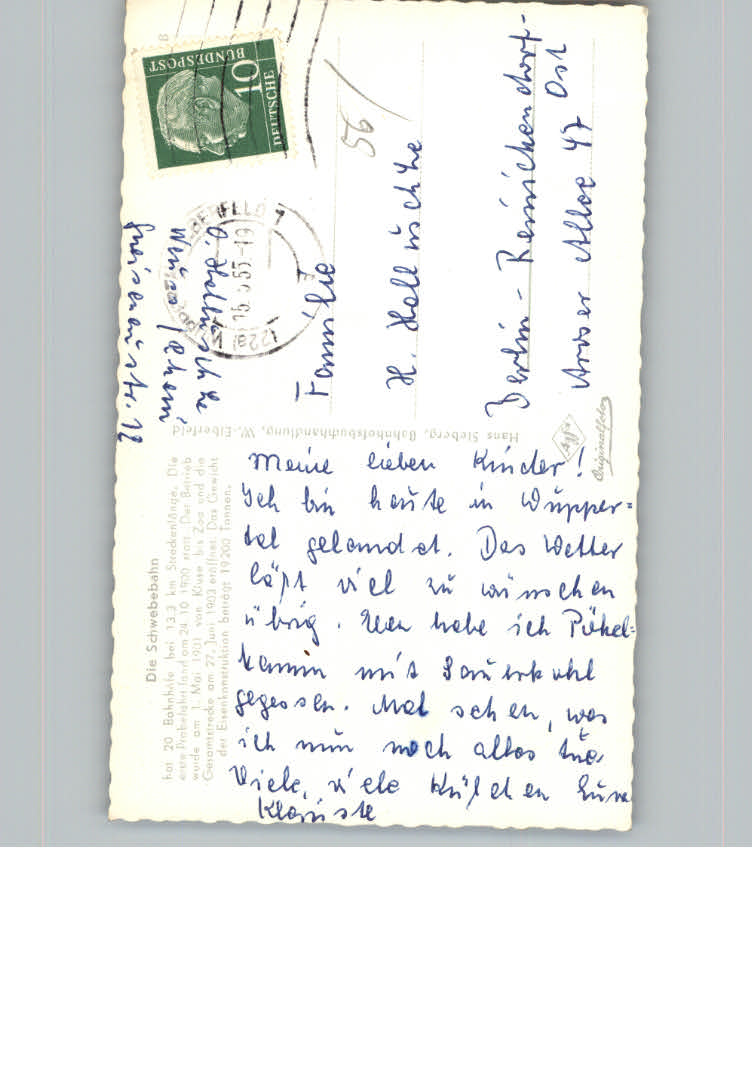 Meine lieben Kinder!
Ich bin heute in Wupper=
tal gelandet. Das Wetter
läßt viel zu wünschen
übrig. Eben habe ich Pökel=
kamm mit Sauerkohl
gegessen. Mal sehen, was
ich nun noch alles tue.
Viele, viele Küßchen Eure
Familie
H. Halluschke
Berlin - Reinickendorf-
Ost
Aroser Allee 47
56/
Neuss/Rhein
Gneisenaustr. 12
DEUTSCHE
BUNDESPOST
10
Die Schwebebahn
hat 20 Bahnhöfe bei 13.3 km Streckenlänge. Die
erste Probefahrt fand am 24.10.1900 statt. Der Betrieb
wurde am 1. Mai 1901 von Kluse bis Zoo und die
Gesamtstrecke am 27. Juni 1903 eröffnet. Das Gewicht
der Eisenkonstruktion beträgt 19200 Tonnen.
Hans Sieberg, Bahnhofsbuchhandlung, W.-Elberfeld
Agfa
Originalfoto